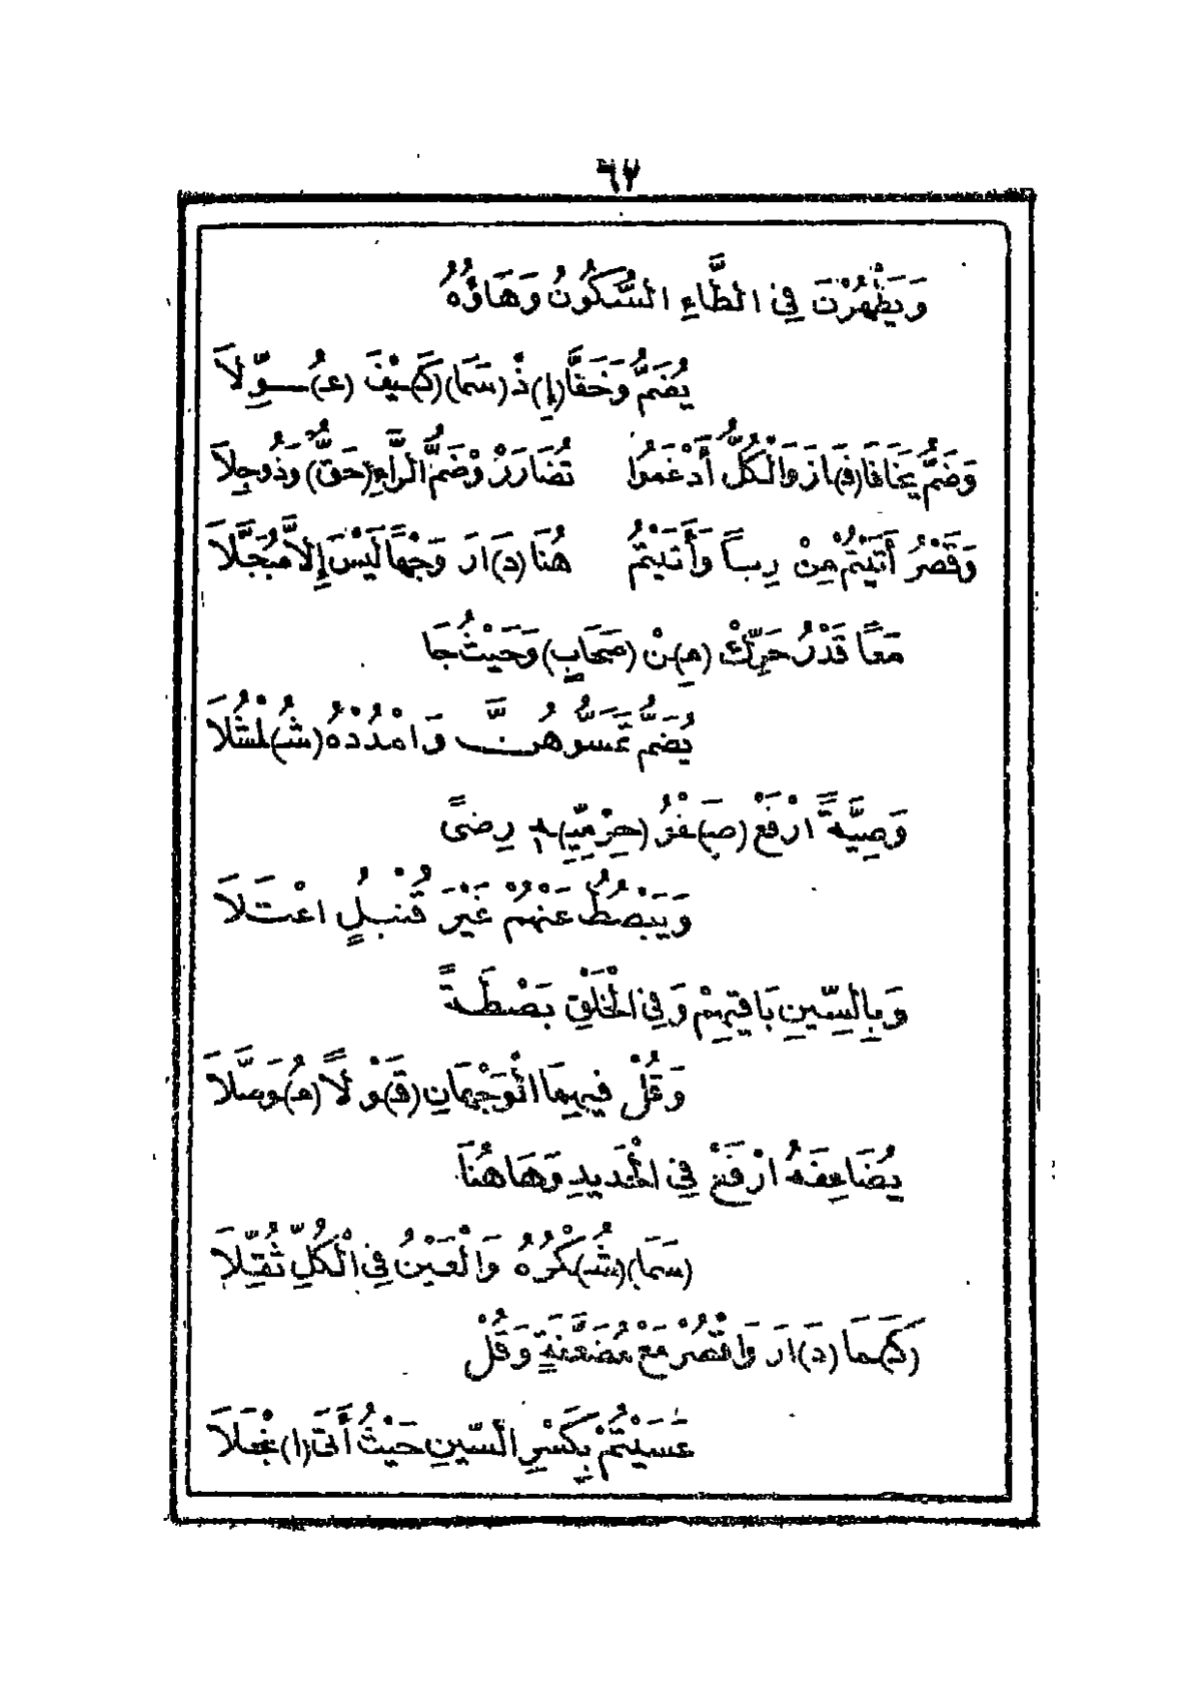 ٦٧
وَيَطْهُرْنَ فِي الطَّاءِ السُّكُونُ وَهَاؤُهُ
يُضَمُّ وَخَفَّا (إِ)ذْ (سَمَا) (كَـ)ـيْفَ (عُـ)ـوِّلَا
وَضَمُّ يَخَافَا (فَـ)ـازَ وَالْكُلُّ أَدْغَمُوا تُضَارَرْ وَضَمُّ الرَّاءِ (حَقٌّ) وَذُو جِلَا
وَقَصْرُ أَتَيْتُمْ مِنْ رِباً وَأَتَيْتُمُ هُنَا (دَ)ارَ وَجْهاً لَيْسَ إِلَّا مُبَجَّلَا
مَعًا قَدْرُ حَرِّكْ (مِـ)ـنْ (صِحَابٍ) وَحَيْثُ جَا
يُضَمُّ تَمَسُّوهُنَّ وَامْدُدْهُ (شُـ)ـلْشُلَا
وَصِيَّةً ارْفَعْ (صَـ)ـفْوُ (حِرْمِيِّـ)ـهِ رِضىً
وَيَبْصُطُ عَنْهُمْ غَيْرَ قُنْبُلٍ اعْتَلَا
وَبِالسِّينِ بَاقِيهِمْ وَفِي الْخَلْقِ بَصْطَةً
وَقُلْ فِيهِمَا الْوَجْهَانِ (قَـ)ـوْلًا (مُـ)ـوَصَّلَا
يُضَاعِفَهُ ارْفَعْ فِي الْحَدِيدِ وَهَاهُنَا
(سَمَا) (شُـ)ـكْرُهُ وَالْعَيْنُ فِي الْكُلِّ ثُقِّلَا
(كَـ)ـمَا (دَ)ارَ وَاقْصُرْ مَعْ مُضَعَّفَةٍ وَقُلْ
عَسَيْتُمْ بِكَسْرِ السِّينِ حَيْثُ أَتَى (ا)نْجَلَا